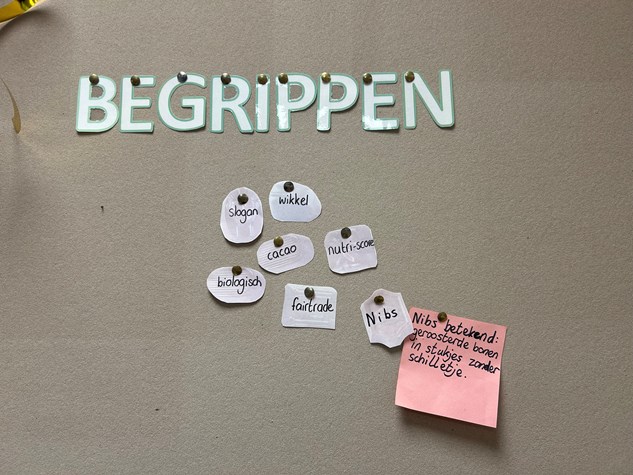 BEGRIPPEN
slogan
wikkel
cacao
nutri-score
biologisch
fairtrade
Nibs
Nibs betekend:
geroosterde bonen
in stukjes zonder
schilletje.